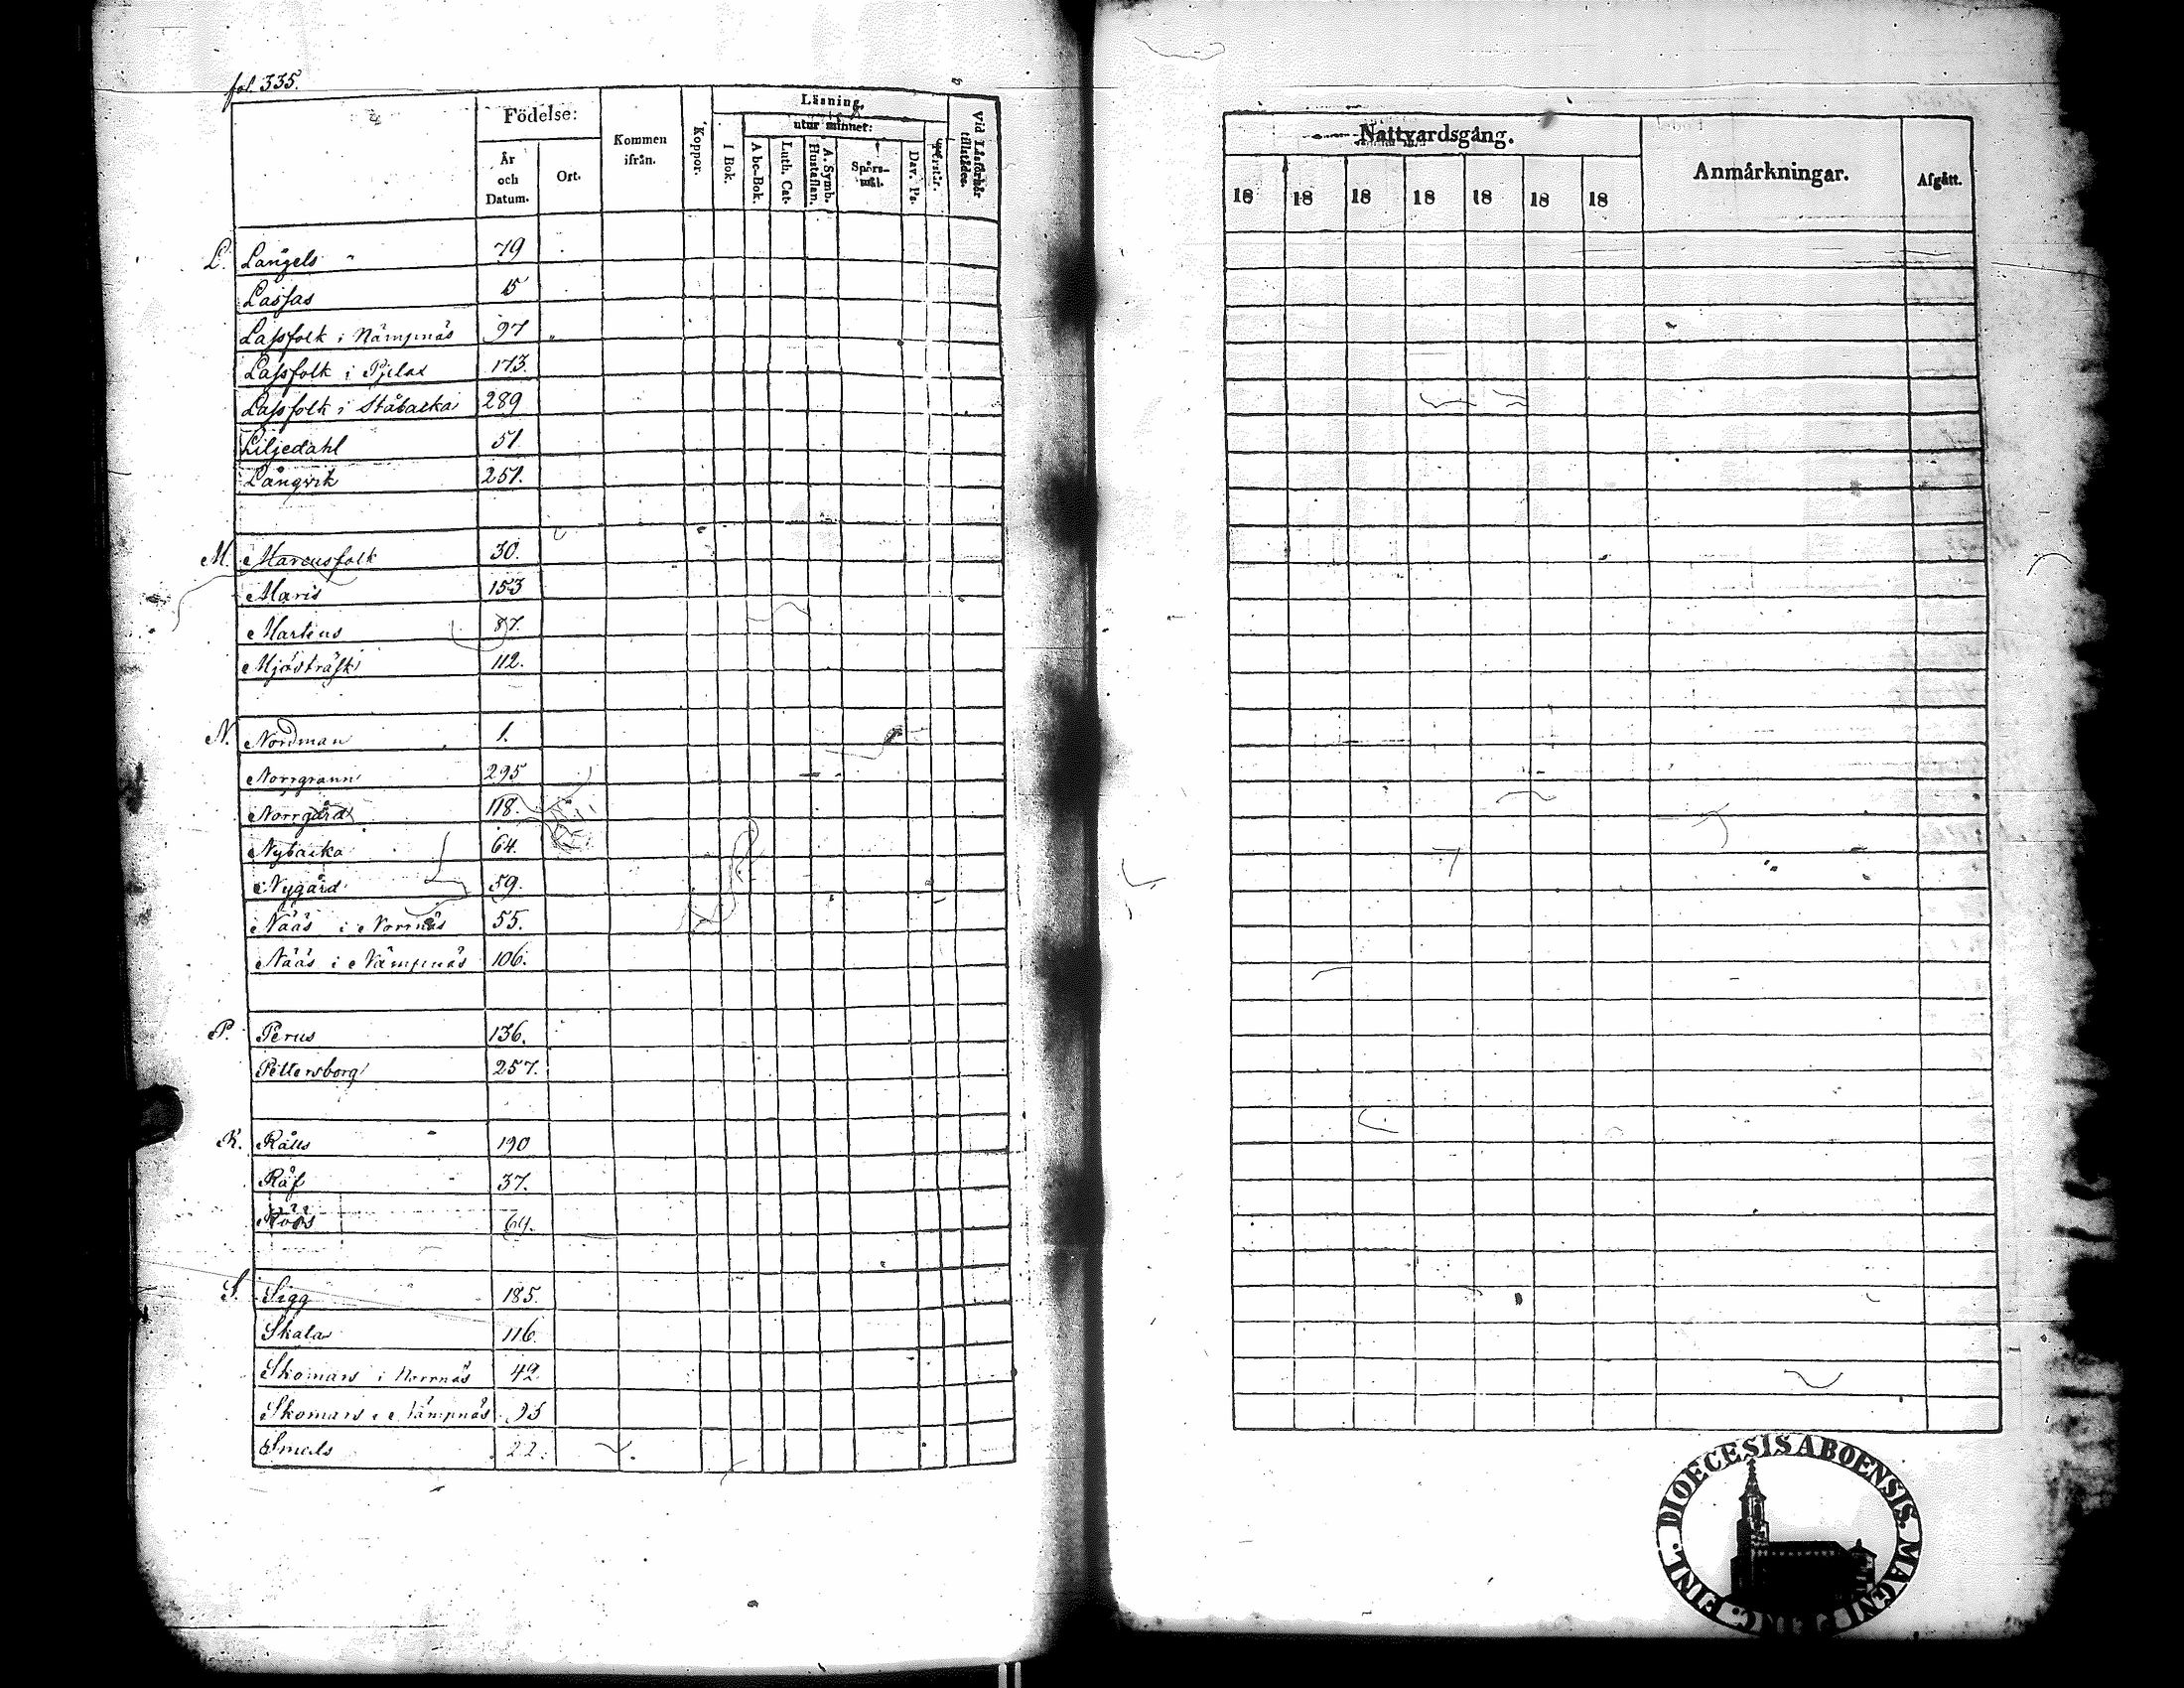 fol. 335.
Födelse:
År och Datum.
Ort.
Kommen ifrån.
Koppor.
Läsning.
utur minnet:
I Bok.
Abc-Bok.
Luth. Cat.
A. Symb. Hustaflan.
Spörs-mål.
Dav. Ps.
Vid Läsförhör tillstädes.
L. Långels 79
Lasfas 15
Lassfolk i Nämpnäs 97
Lassfolk i Pjelax 173.
Lassfolk i Ståbacka 289
Liljedahl 51.
Långvik 251.
M. Marcusfolk 30.
Maris 153
Martens 87.
Mjösträsk 112.
N. Nordman 1.
Norrgrann 295
Norrgård 118.
Nybacka 64.
Nygård 59.
Nääs i Norrnäs 55.
Nääs i Nämpnäs 106.
P. Perus 136.
Pettersborg 257.
R. 190
Räf 37.
Röös 64.
S. Sigg 185.
Skata 116.
Skomars i Norrnäs 42
Skomars i Nämpnäs 93
Smeds 22.
Nattvardsgång.
18 18 18 18 18 18 18
Anmärkningar.
Afgått.
FINL. DIOECESIS ABOENSIS. MAGNI